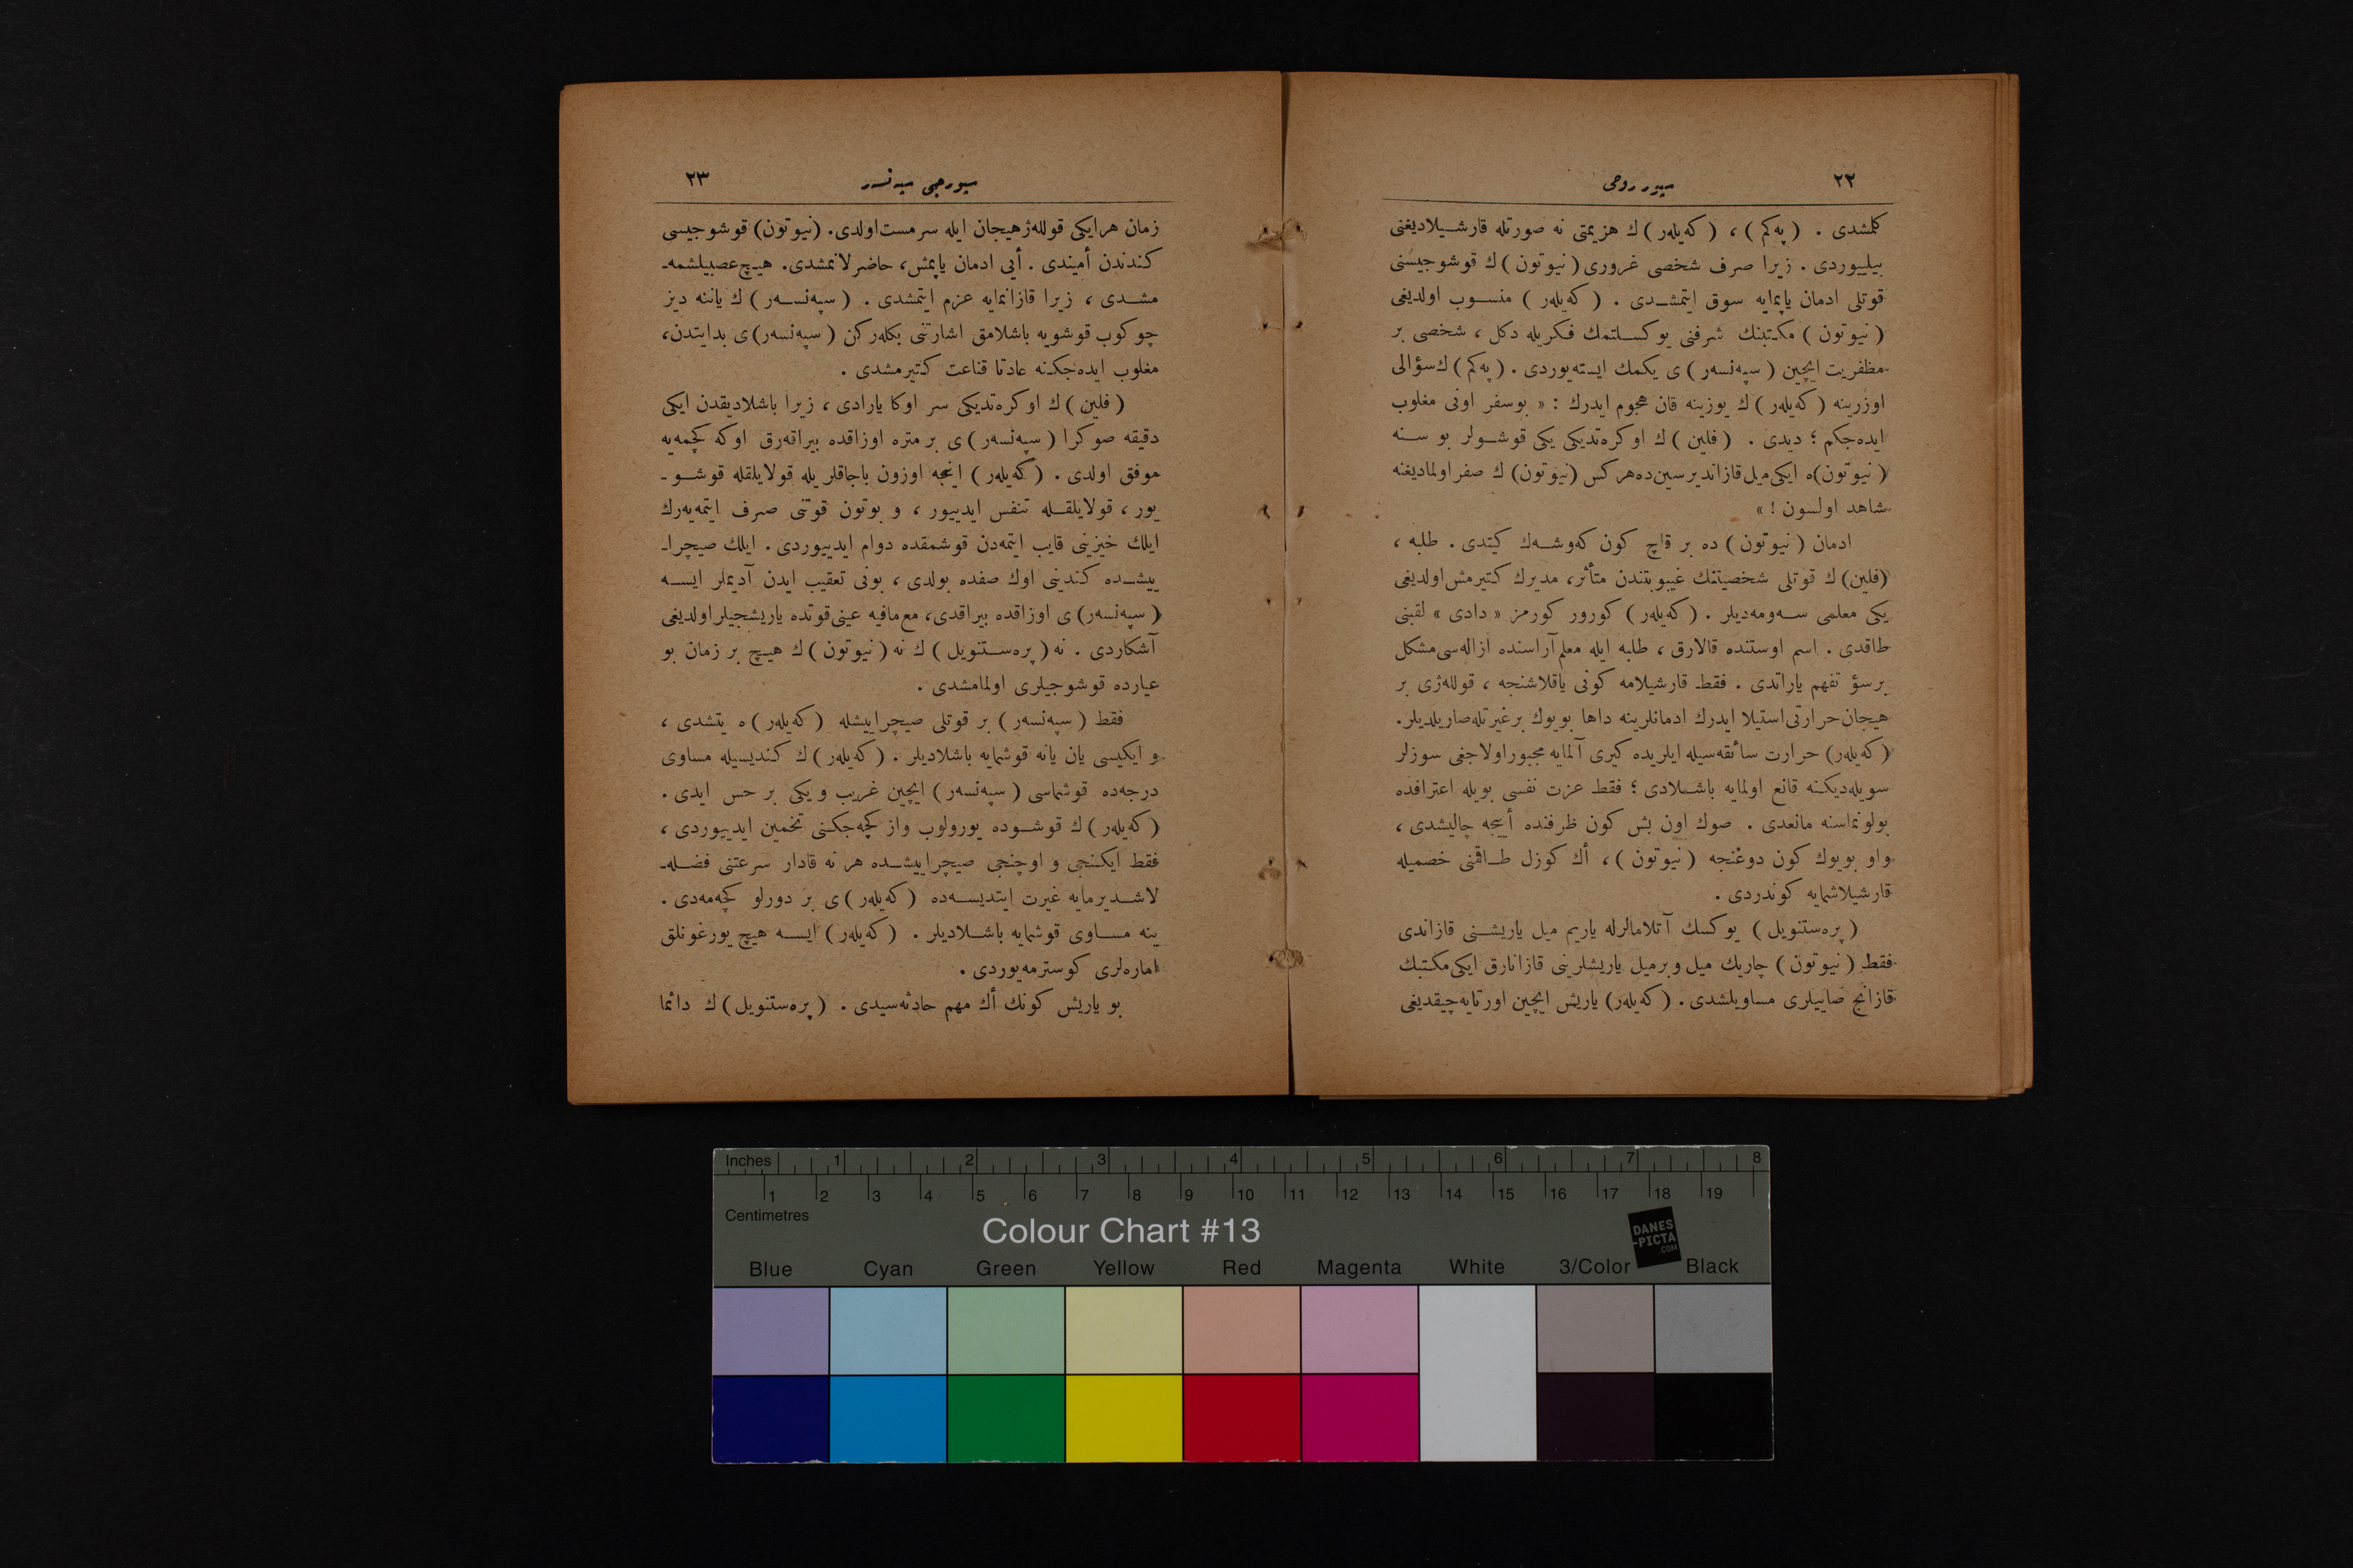 ٢٢
سپور روحی
كلمشدی . (پەكم) ، (كەیلەر)ك هزیمتی نه صورتله قارشیلادیغنی
بیلییوردی . زیرا صرف شخصی غروری (نیوتون)ك قوشوجیسنی
قوتلی ادمان یاپمایه سوق ایتمشدی . (كەیلەر) منسوب اولدیغی
(نیوتون) مكتبنك شرفنی یوكسلتمك فكریله دكل ، شخصی بر
مظفریت ایچین (سپەنسەر)ی یكمك ایستەیوردی . (پەكم)ك سؤالی
اوزرینه (كەیلەر)ك یوزینه قان هجوم ایدرك : « بوسفر اونی مغلوب
ایدەجكم ؛ دیدی . (فلین)ك اوكرەتدیكی یكی قوشولر بو سنه
(نیوتون)ه ایكی میل قازاندیرسین دە هركس (نیوتون)ك صفر اولمادیغنه
شاهد اولسون ! »
ادمان (نیوتون) ده بر قاچ كون كەوشەك كیتدی . طلبه ،
(فلین)ك قوتلی شخصیتنك غیبوبتندن متأثر، مدیرك كتیرمش اولدیغی
یكی معلمی سەومەدیلر . (كەیلەر) كورور كورمز « دادی » لقبنی
طاقدی . اسم اوستنده قالارق ، طلبه ایله معلم آراسنده ازالەسی مشكل
برسؤ تفهم یاراتدی . فقط قارشیلامه كونی یاقلاشنجه ، قوللەژی بر
هیجان حرارتی استیلا ایدرك ادمانلرینه داها بویوك برغیرتله صاریلدیلر.
(كەیلەر) حرارت سائقەسیله ایلریده كیری آلمایه مجبور اولاجغی سوزلر
سویلەدیكنه قانع اولمایه باشلادی ؛ فقط عزت نفسی بویله اعترافده
بولونماسنه مانعدی . صوك اون بش كون ظرفنده أییجه چالیشدی ،
واو بویوك كون دوغنجه (نیوتون) ، أك كوزل طاقمنی خصمیله
قارشیلاشمایه كوندردی .
(پرەستنویل) یوكسك آتلامالرله یاریم میل یاریشنی قازاندی
فقط (نیوتون) چاریك میل وبرمیل یاریشلرینی قازانارق ایكی مكتبك
قازانج صاییلری مساویلشدی . (كەیلەر) یاریش ایچین اورتایه چیقدیغی
٢٣
سپورجی سپەنسەر
زمان هرایكی قوللەژ هیجان ایله سرمست اولدی. (نیوتون) قوشوجیسی
كندندن أمیندی . أیی ادمان یاپمش، حاضرلانمشدی. هیچ عصبیلشمه-
مشدی ، زیرا قازانمایه عزم ایتمشدی . (سپەنسەر)ك یاننه دیز
چوكوب قوشویه باشلامق اشارتنی بكلەركن (سپەنسەر)ی بدایتدن،
مغلوب ایدەجكنه عادتا قناعت كتیرمشدی .
(فلین)ك اوكرەتدیكی سر اوكا یارادی ، زیرا باشلادیقدن ایكی
دقیقه صوكرا (سپەنسەر)ی بر متره اوزاقده بیراقەرق اوكه كچمەیه
موفق اولدی . (كەیلەر) اینجه اوزون باجاقلریله قولایلقله قوشو-
یور ، قولایلقله تنفس ایدییور ، و بوتون قوتنی صرف ایتمەیەرك
ایلك خیزینی قایب ایتمەدن قوشمقده دوام ایدییوردی . ایلك صیچرا-
ییشده كندینی اوك صفده بولدی ، بونی تعقیب ایدن آدیملر ایسه
(سپەنسەر)ی اوزاقده بیراقدی، مع مافیه عینی قوتده یاریشجیلر اولدیغی
آشكاردی . نه (پرەستنویل)ك نه (نیوتون)ك هیچ بر زمان بو
عیارده قوشوجیلری اولمامشدی .
فقط (سپەنسەر) بر قوتلی صیچراییشله (كەیلەر)ه یتشدی ،
و ایكیسی یان یانه قوشمایه باشلادیلر . (كەیلەر)ك كندیسیله مساوی
درجەده قوشماسی (سپەنسەر) ایچین غریب ویكی بر حس ایدی .
(كەیلەر)ك قوشوده یورولوب واز كچەجكنی تخمین ایدییوردی ،
فقط ایكنجی و اوچنجی صیچراییشده هر نه قادار سرعتنی فضله-
لاشدیرمایه غیرت ایتدیسەده (كەیلەر)ی بر دورلو كچەمەدی .
ینه مساوی قوشمایه باشلادیلر . (كەیلەر) ایسه هیچ یورغونلق
امارەلری كوسترمەیوردی .
بو یاریش كونك أك مهم حادثەسیدی . (پرەستنویل)ك دائما
Inches 1 2 3 4 5 6 7 8
1 2 3 4 5 6 7 8 9 10 11 12 13 14 15 16 17 18 19
Centimetres
Colour Chart #13
DANES
-PICTA
.COM
Blue Cyan Green Yellow Red Magenta White 3/Color Black